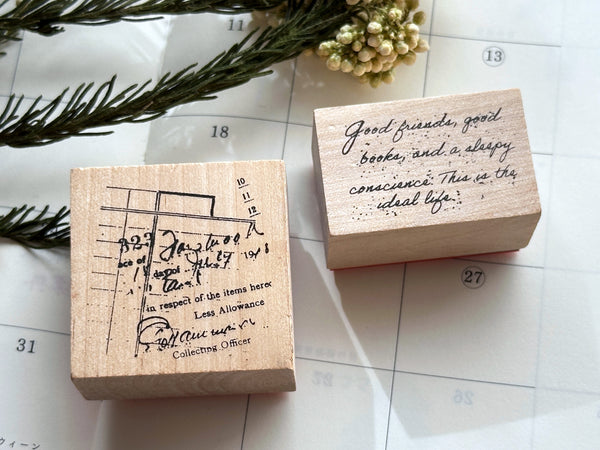 11
13
18
Good friends, good
books, and a sleepy
conscience. This is the
ideal life.
10
11
12
323
in respect of the items here
Less Allowance
Collecting Officer
27
31
26
ウィーン